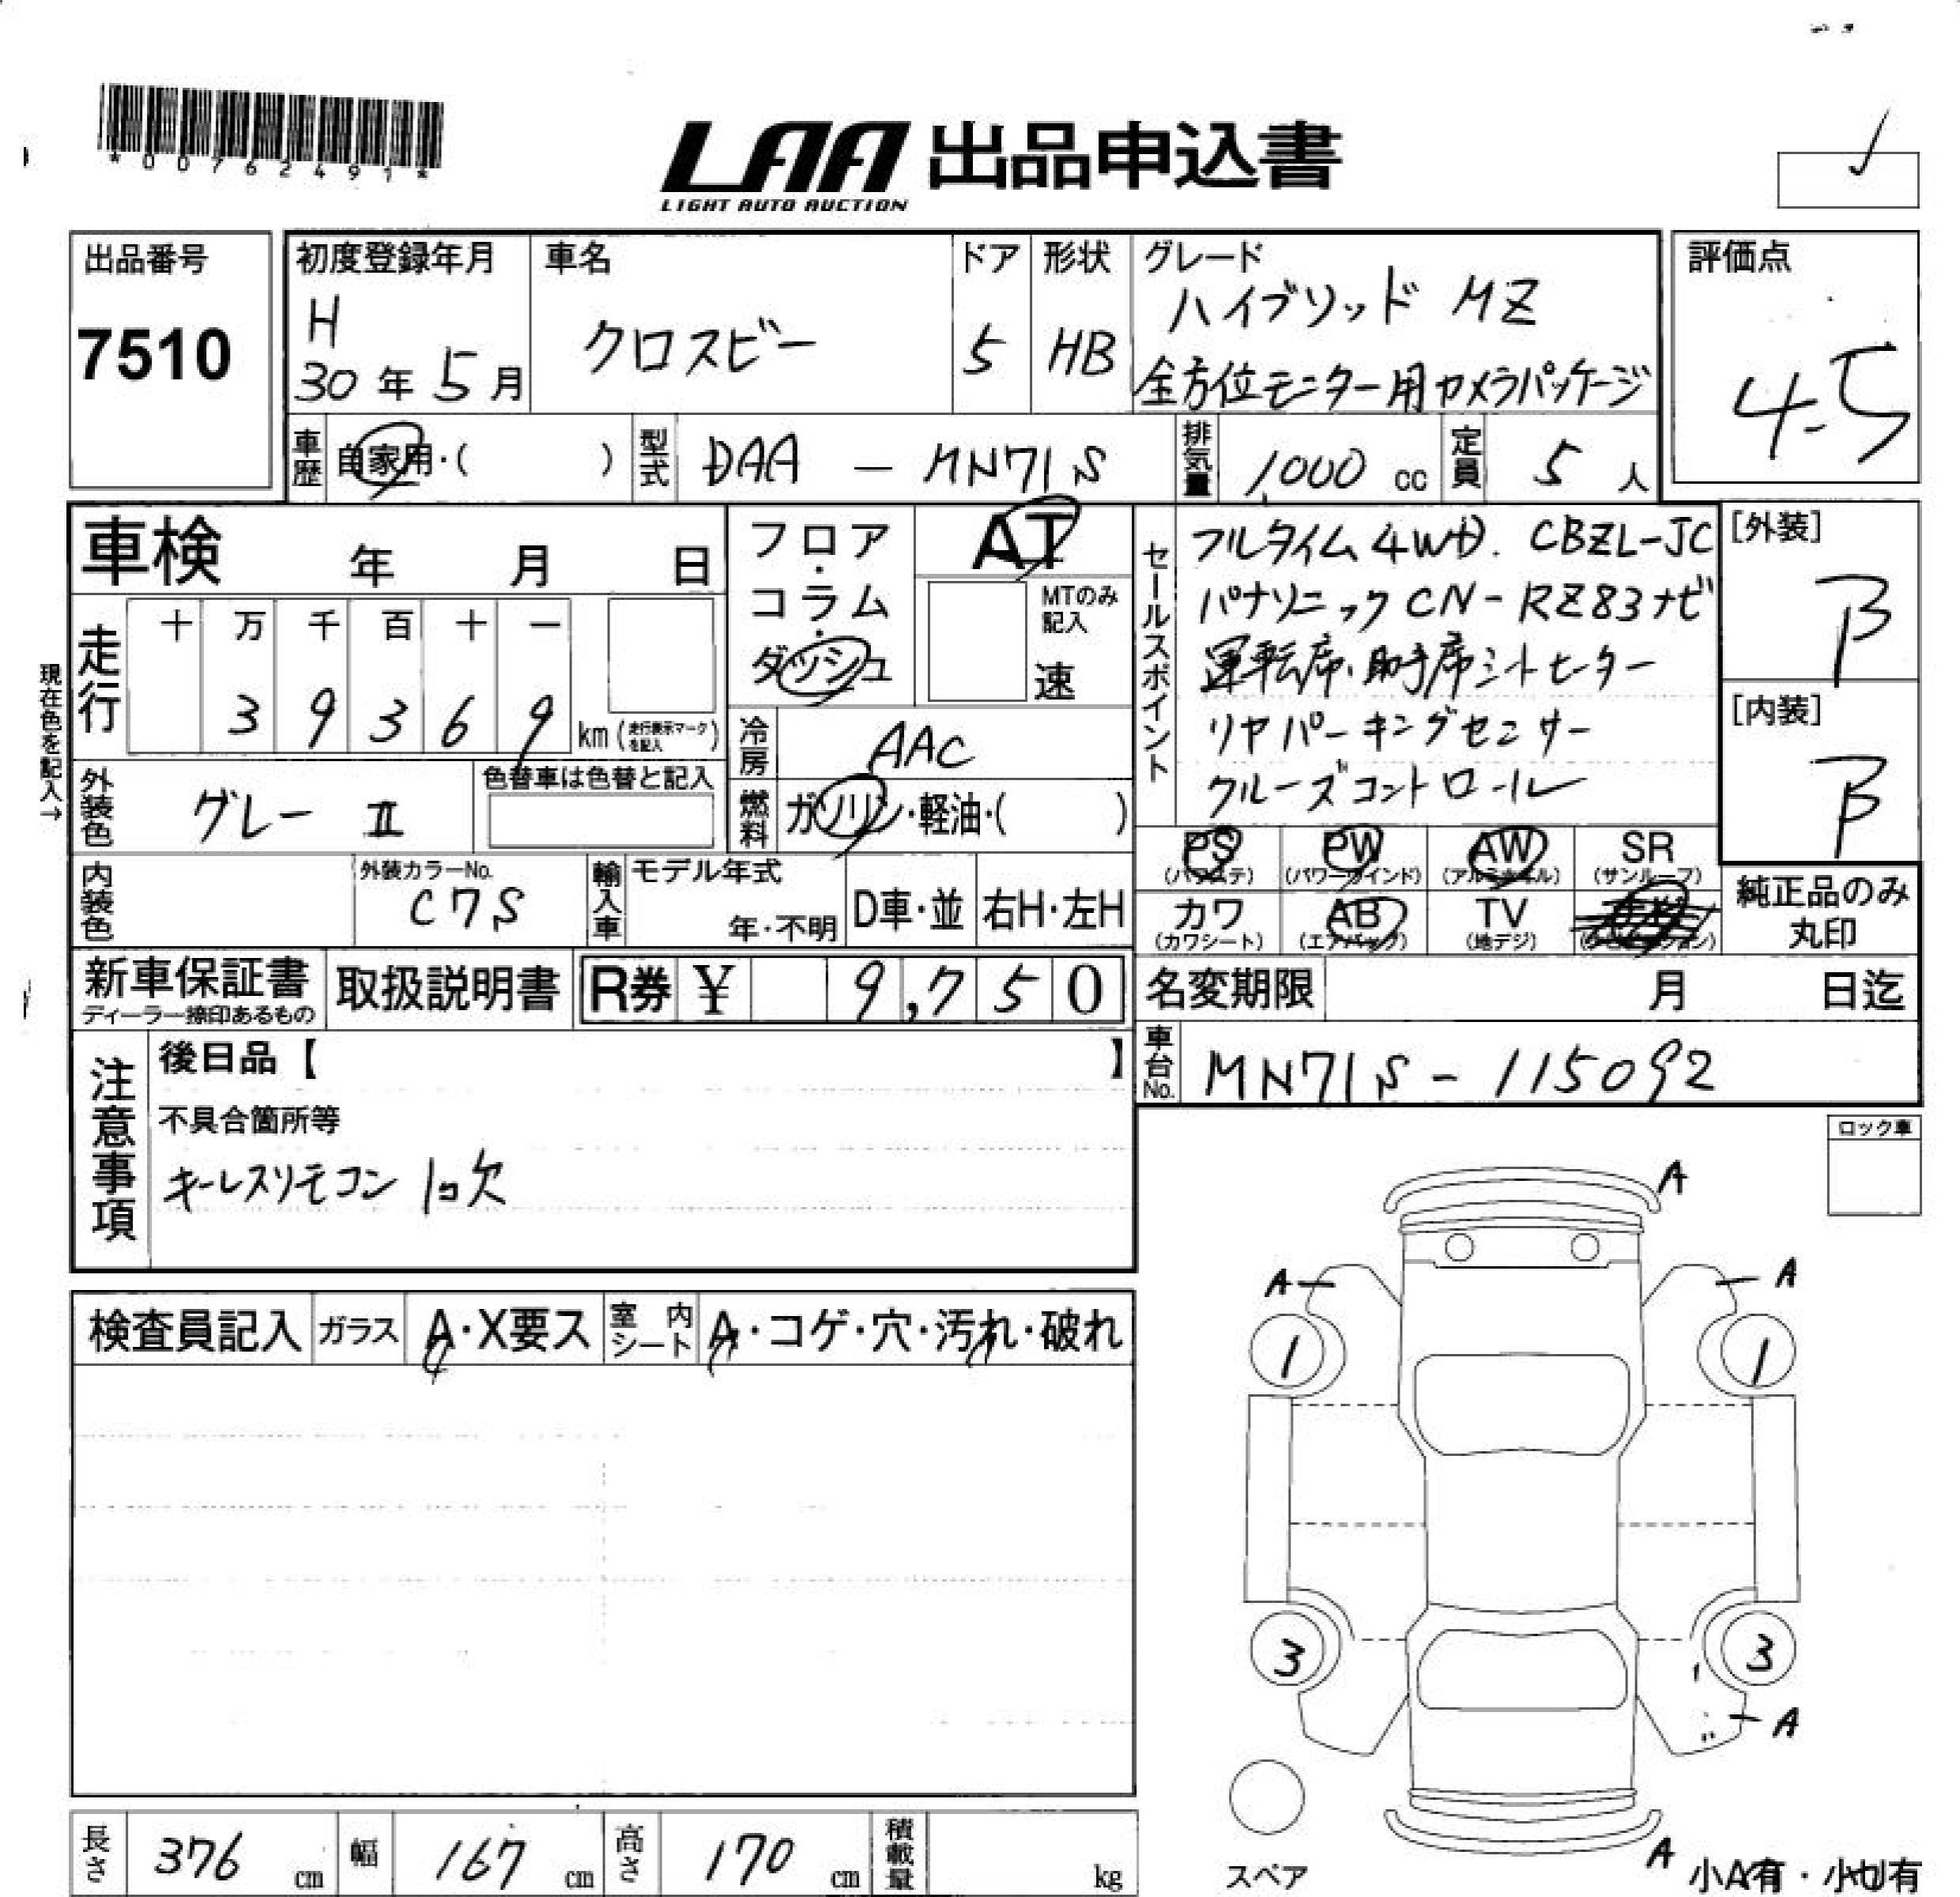 *00762491*
LAA 出品申込書
LIGHT AUTO AUCTION
出品番号
7510
初度登録年月
H
30年5月
車名
クロスビー
ドア
5
形状
HB
グレード
ハイブリッド MZ
全方位モニター用カメラパッケージ
評価点
4.5
車歴
自家用・( )
型式
DAA - MN71S
排気量
1,000 cc
定員
5 人
車検 年 月 日
現在色を記入→
走行
十 万 千 百 十 一
3 9 3 6 9 km (走行表示マークを記入)
フロア・コラム・ダッシュ
AT
MTのみ記入
速
冷房
AAC
燃料
ガソリン・軽油・( )
外装色
グレー II
色替車は色替と記入
内装色
外装カラーNo.
C7S
輸入車
モデル年式
年・不明
D車・並
右H・左H
セールスポイント
フルタイム4WD. CBZL-JC
パナソニックCN-RZ83ナビ
運転席・助手席シートヒーター
リヤパーキングセンサー
クルーズコントロール
[外装]
B
[内装]
B
PS (パワステ)
PW (パワーウインド)
AW (アルミホイル)
SR (サンルーフ)
カワ (カワシート)
AB (エアバック)
TV (地デジ)
純正品のみ丸印
新車保証書
ディーラー捺印あるもの
取扱説明書
R券 ¥ 9,750
名変期限 月 日迄
車台No.
MN71S-115092
注意事項
後日品【 】
不具合箇所等
キーレスリモコン 1コ欠
ロック車
検査員記入
ガラス
A・X要ス
室内シート
A・コゲ・穴・汚れ・破れ
A
A
A
1
1
3
3
A
A
スペア
小A有・小U有
長さ 376 cm
幅 167 cm
高さ 170 cm
積載量 kg